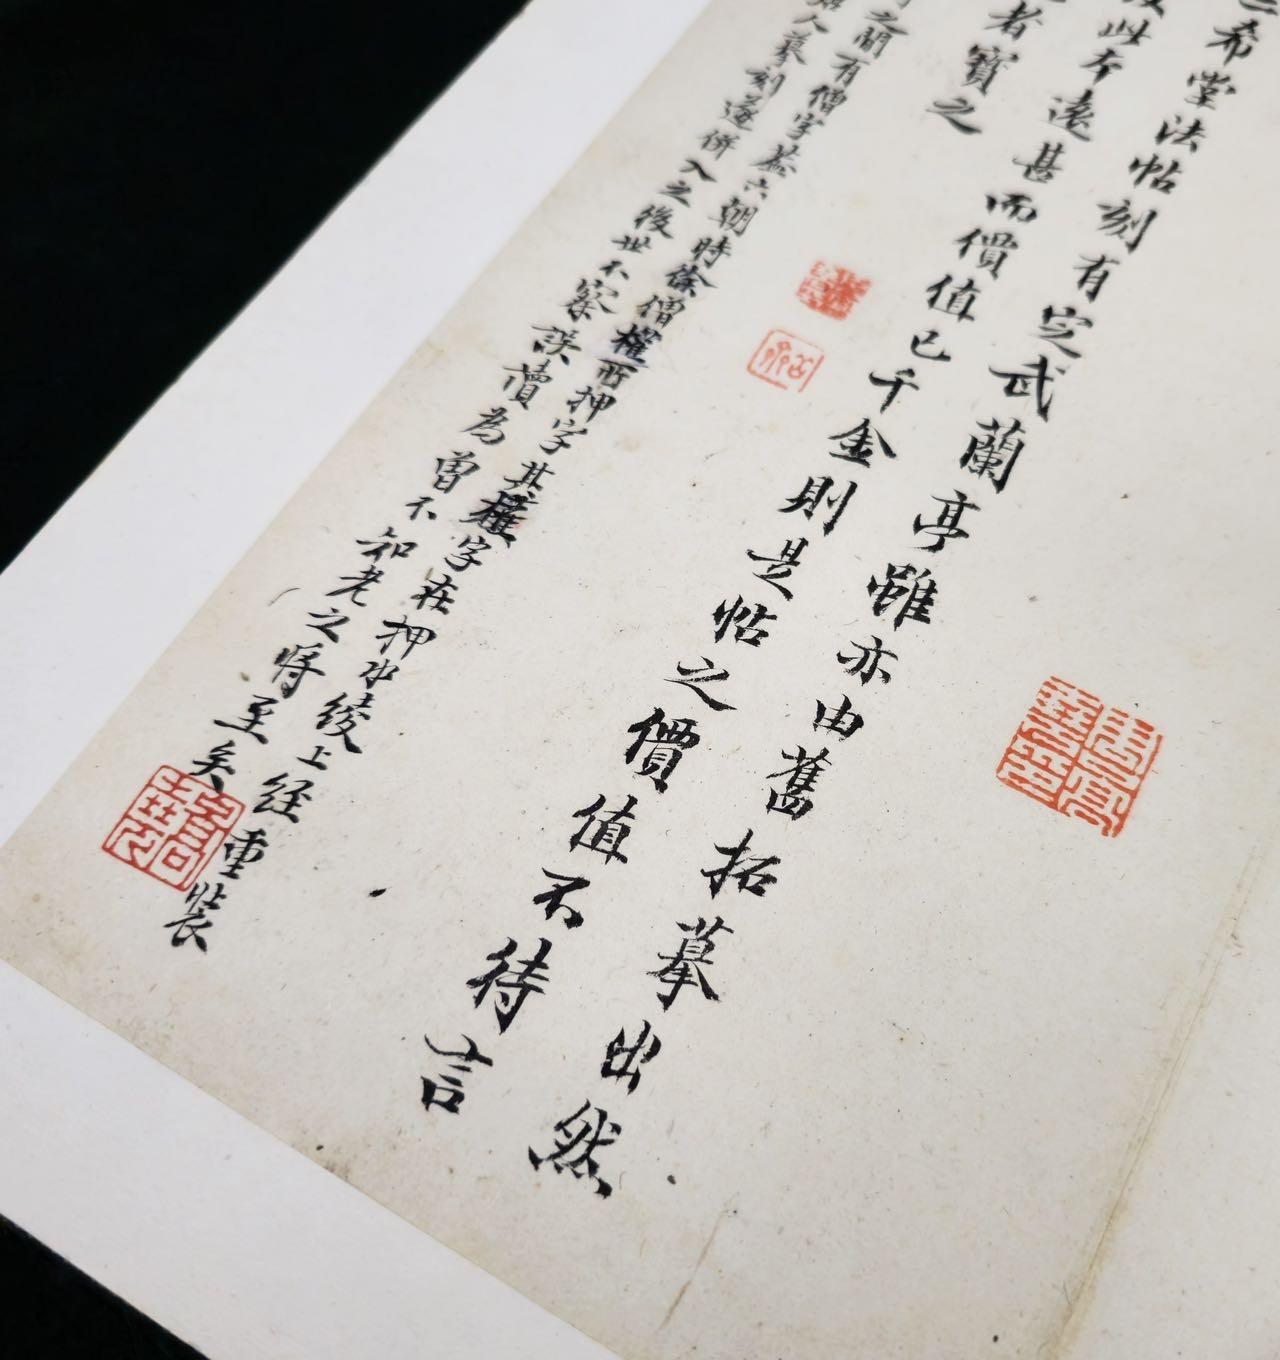 希堂法帖刻有定武蘭亭雖亦由舊拓摹出然
此本遠甚而價值已千金則是帖之價值不待言
者寶之
之間有僧字蓋六朝時徐僧權所押字其權字在押水綾上經重裝
人摹刻遂併入之後世不察誤讀為曾不知老之將至矣